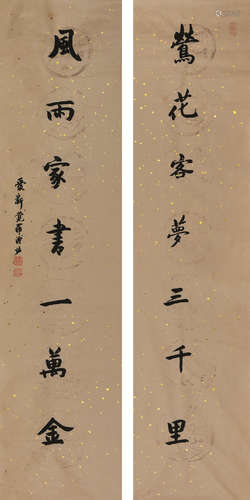 鶯花客夢三千里
風雨家書一萬金
愛新覺羅溥佐